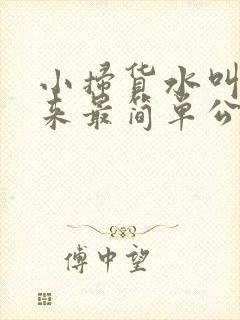 小掃貨水叫
来最简单公
傅中望